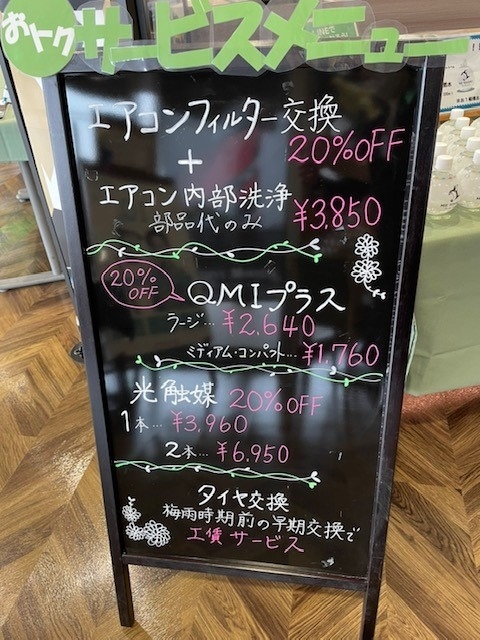 おトクサービスメニュー
エアコンフィルター交換
20%OFF
+
エアコン内部洗浄
部品代のみ ¥3,850
20%OFF
QMIプラス
ラージ… ¥2,640
ミディアム・コンパクト… ¥1,760
光触媒 20%OFF
1本… ¥3,960
2本… ¥6,950
タイヤ交換
梅雨時期前の早期交換で
工賃サービス